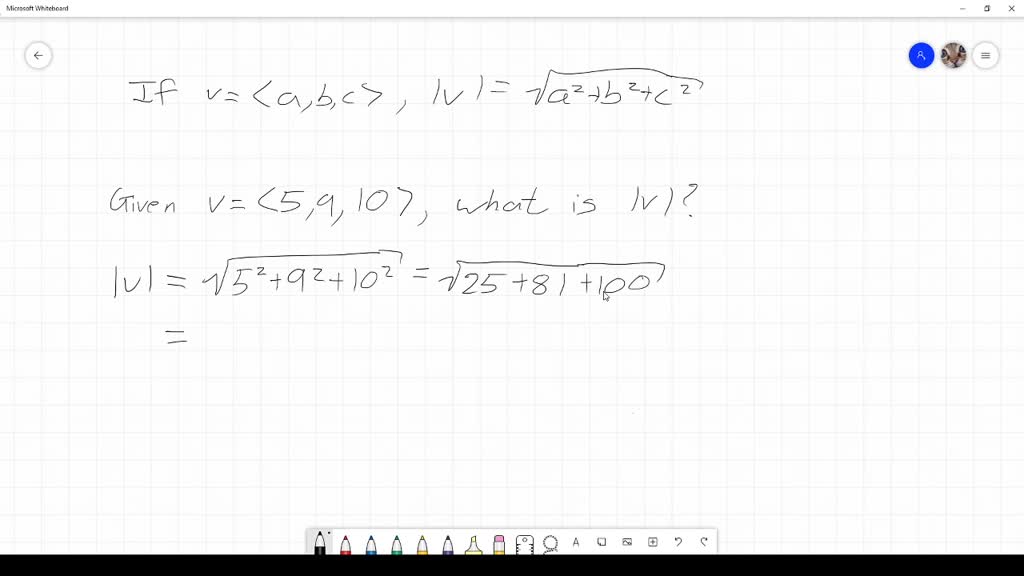 Microsoft Whiteboard
If v = <a,b,c>, |v| = √a²+b²+c²
Given v = <5,9,10>, what is |v|?
|v| = √5²+9²+10² = √25+81+100
=
A